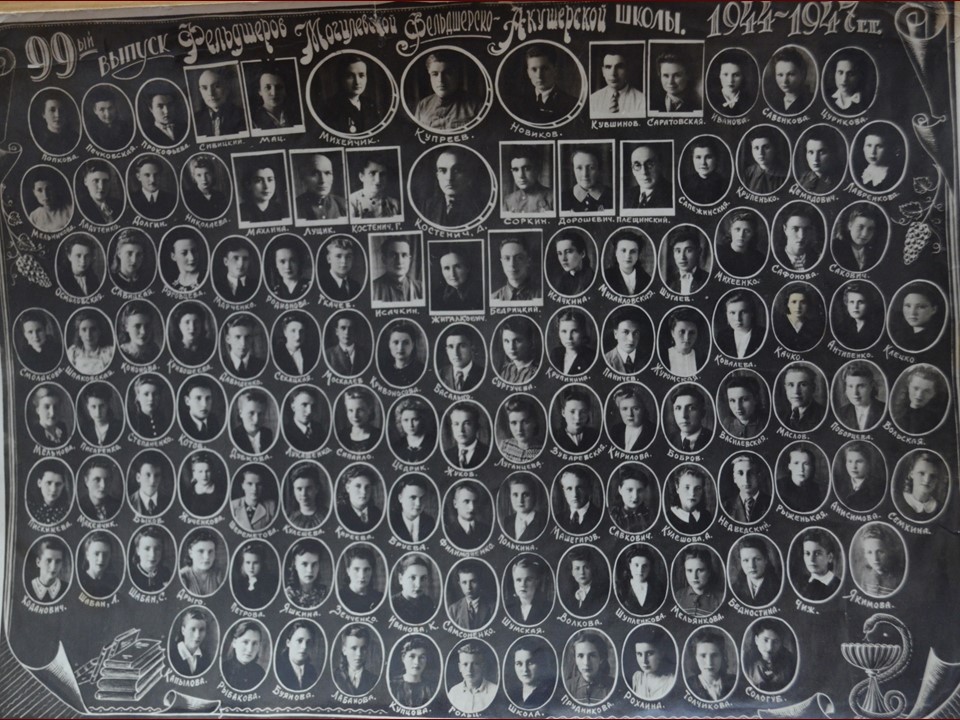 99ый выпуск Фельдшеров Могилевской Фельдшерско-Акушерской школы. 1944-1947 г.г.
Попкова. Прокофьева. Сивицкий. Мац. Михейчик. Купреев. Новиков. Кувшинов. Саратовская. Иванова. Савенкова. Цурикова.
Мельникова. Ладутенко. Долгин. Николаева. Махлина. Луцик. Костенич, Г. Костенич, Д. Соркин. Дорошевич. Плещинский. Сапежинская. Круленько. Демидович. Лавренкова.
Осиповская. Савицкая. Марченко. Родионова. Ткачев. Исачкин. Жигалкович. Бедрицкий. Исачкина. Михайловская. Шугаев. Михеенко. Сафонова. Сакович.
Смолякова. Шпаковская. Давиденко. Секацкая. Москалев Кривоносова. Басалыко. Сургучева. Крупинина. Паничев. Журомская. Ковалева. Качко. Антипенко. Клецко
Мельнова. Степаненко. Котов. Зубкова. Лукашенко. Симайло. Цедрик. Жуков. Луганцева. Бубаревская. Кирилова. Бобров. Василевская. Маслов. Поборцева. Вольская.
Пискижева. Быхов. Жученкова. Шереметова. Кулешова. Киреева. Бруева. Филимоненко. Полькина. Машегиров. Савкович. Кулешова, Д. Недведский. Рыженькая. Анисимова. Семкина.
Коданович. Шабан, А. Шабан, С. Дрыго. Петрова. Яшкина. Зенченко. Иванова, К. Самсоненко. Шумская. Волкова. Шупленкова. Мельянкова. Бедностина. Чиж. Якимова.
Капылова. Рыбакова. Буянова. Лабанова. Купцова. Рольч. Школа. Прудникова. Рохлина. Толчикова. Сологуб.